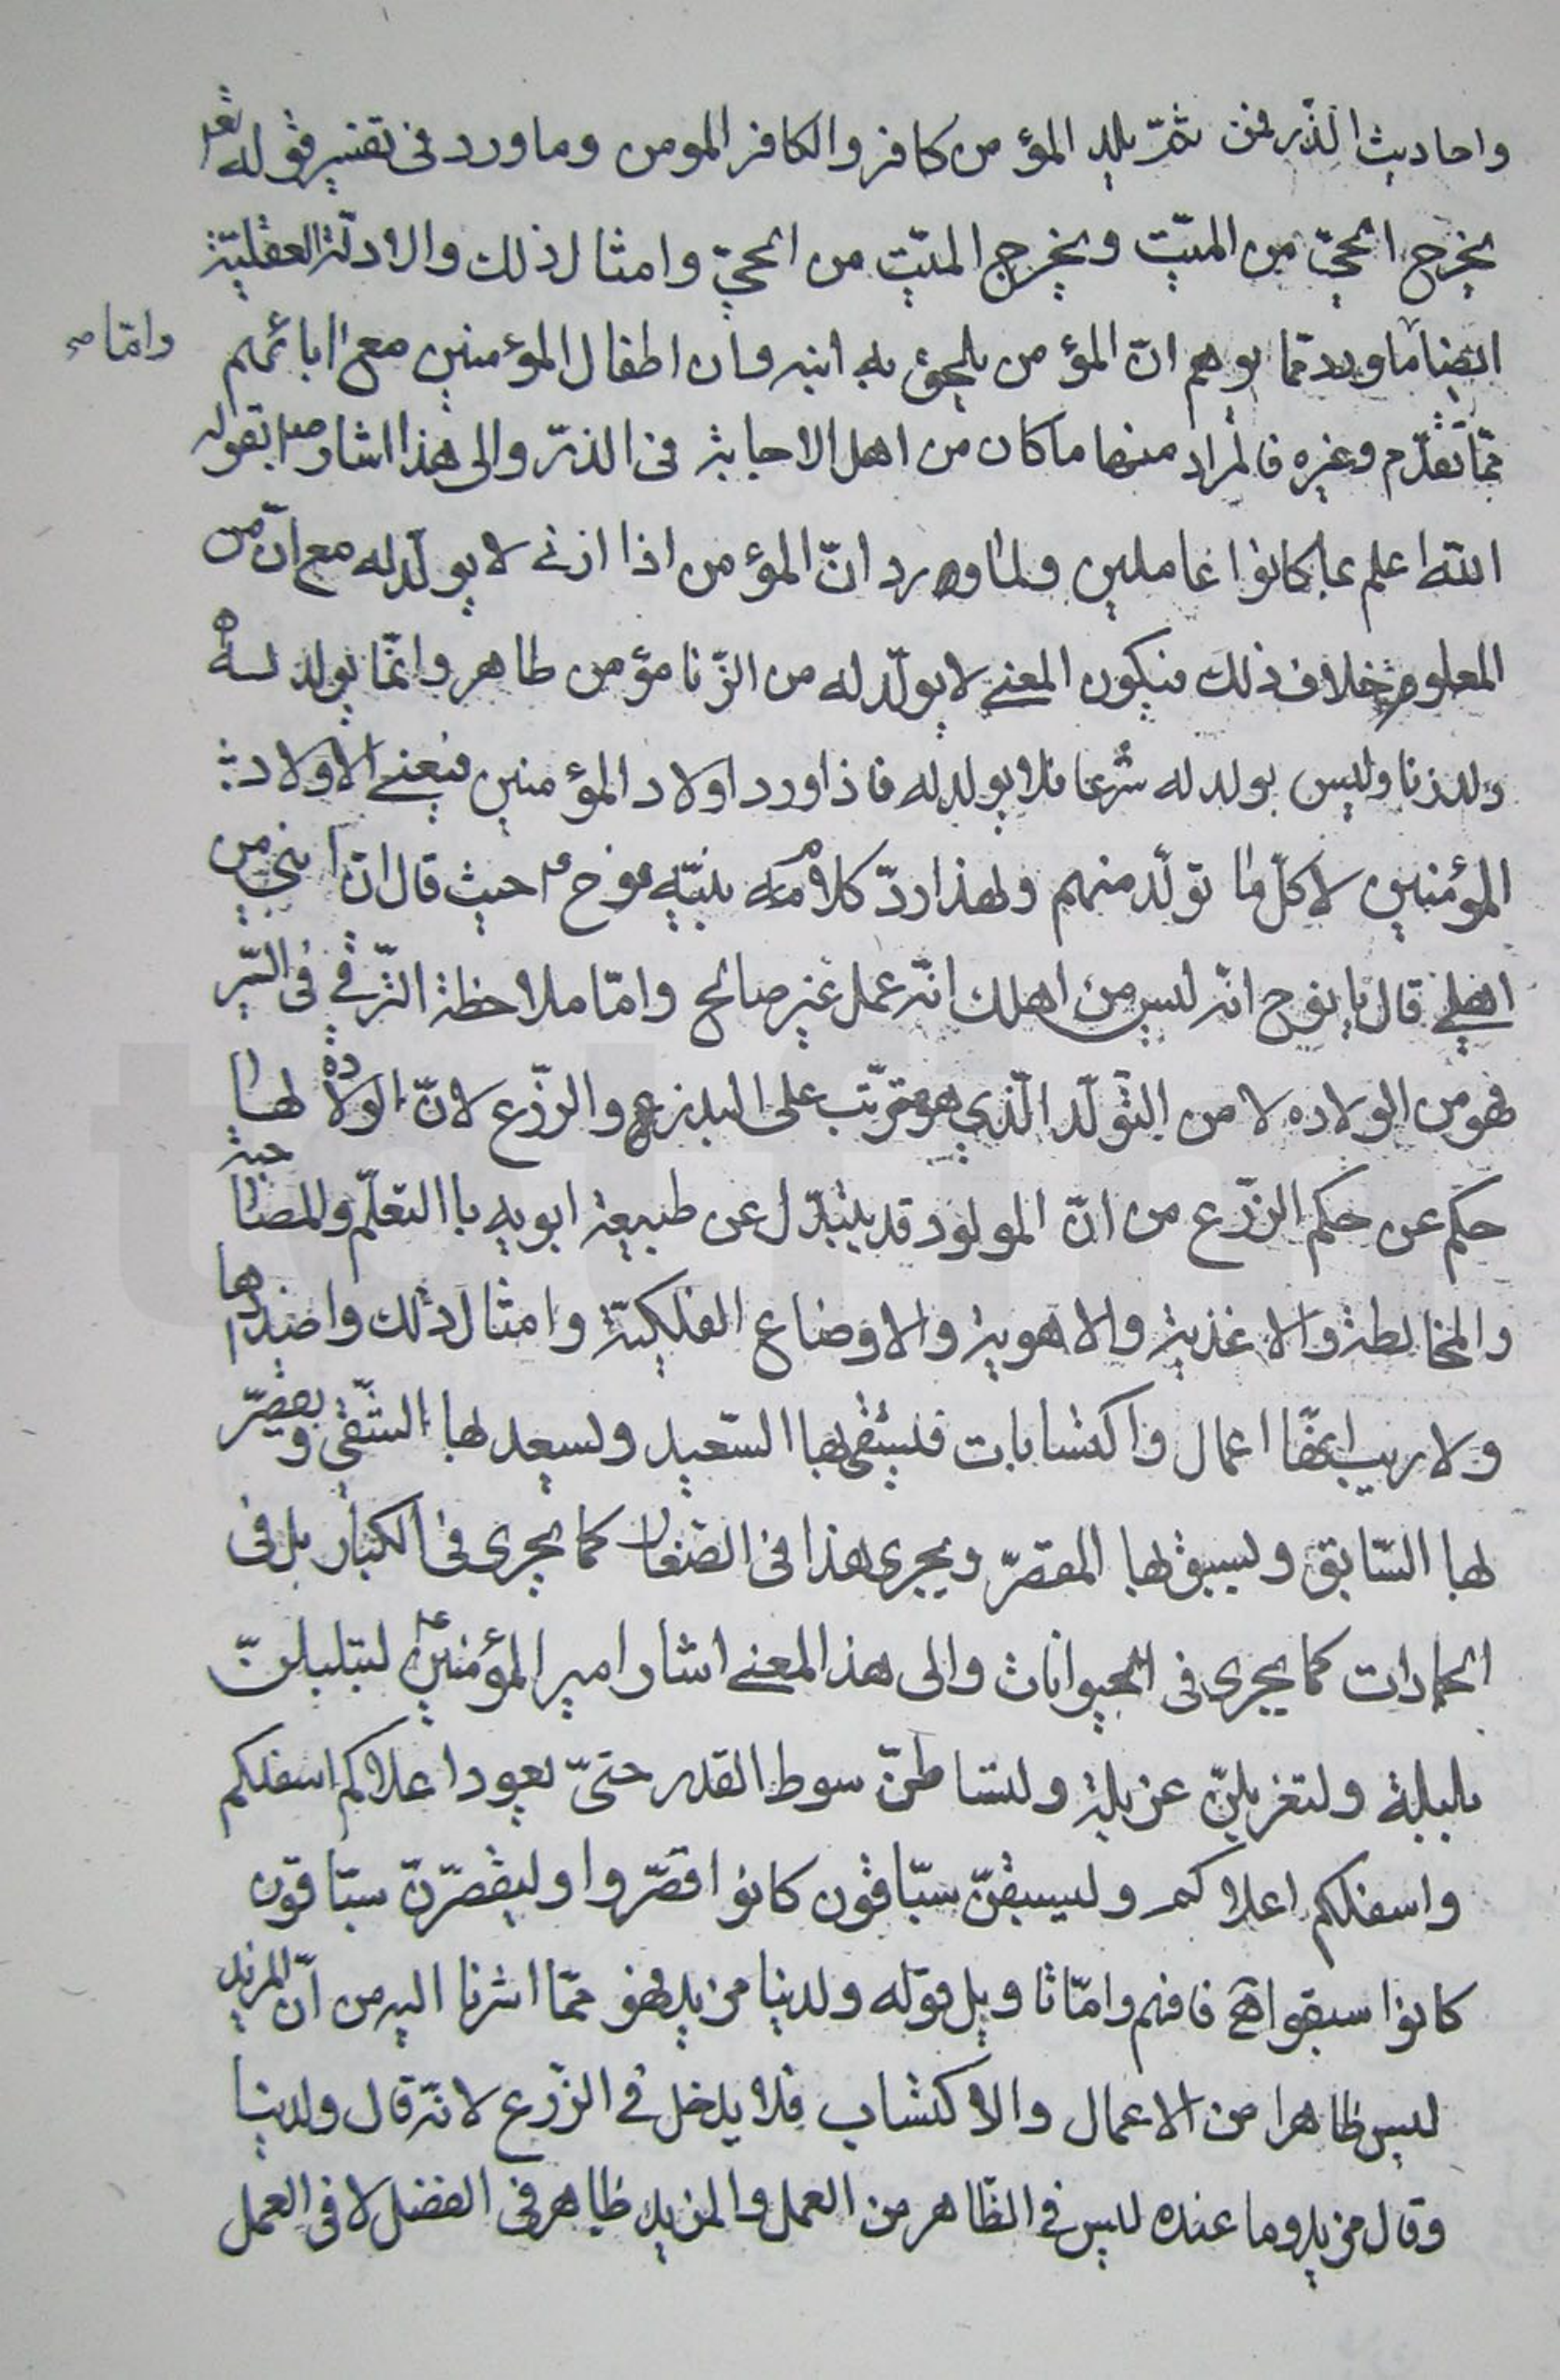 واحاديث الذّر فمن ثمّ يلد المؤمن كافر والكافر المومن وما ورد فى تفسير قوله تع
يخرج الحيّ من الميّت ويخرج الميّت من الحيّ وامثال ذلك والادلّة العقليّة
ايضا ما ورد ممّا يوهم انّ المؤمن يلحق به ابنه وان اطفال المؤمنين مع ابائهم
وامّا صح
ممّا تقدّم وغيره فالمراد منها ما كان من اهل الاجابة فى الذرّ والى هذا اشار ص بقوله
الله اعلم بما كانوا عاملين ولما ورد انّ المؤمن اذا ازنى لا يولّد له مع انّ من
المعلوم خلاف ذلك فيكون المعنى لا يولّد له من الزّنا مؤمن طاهر وانّما يولد له
ولد زنا وليس بولد له شرعا فلا يولد له فاذا ورد اولاد المؤمنين فيعنى الاولاد
المؤمنين لا كلّ ما تولّد منهم ولهذا ردّ كلام نبيّه نوح ع حيث قال انّ ابنى من
اهلى قال يا نوح انه ليس من اهلك انّه عمل غير صالح وامّا ملاحظة الترّقى فى السّير
فهو من الولاده لا من التّولّد الّذى هو مترتّب على البذر والزّرع لانّ الولادة لها
حكم عن حكم الزّرع من انّ المولود قد يتبدّل عن طبيعة ابويه با التعلّم والمصاحبة
والمخالطة والاغذية والاهوية والاوضاع الفلكيّة وامثال ذلك واضدادها
ولا ريب انّها اعمال واكتسابات فيشقى بها السّعيد ويسعد لها الشّقى ويقصّر
لها السّابق ويسبق لها المقصّر ويجرى هذا فى الصّغار كما يجرى فى الكبار بل فى
الجمادات كما يجرى فى الحيوانات والى هذا المعنى اشار امير المؤمنين ع لتبلبلنّ
بلبلة ولتغربلنّ غربلة ولتساطنّ سوط القدر حتىّ يعود اعلاكم اسفلكم
واسفلكم اعلاكم وليسبقنّ سبّاقون كانوا قصّروا وليقصّرنّ سبّاقون
كانوا سبقوا فافهم وامّا تاويل قوله ولدينا مزيد فهو ممّا اشرنا اليه من انّ المزيد
ليس ظاهرا من الاعمال والاكتساب فلا يدخل فى الزّرع لانّه قال ولدينا
وقال مزيد وما عنده ليس فى الظّاهر من العمل والمزيد ظاهر فى الفضل لا فى العمل